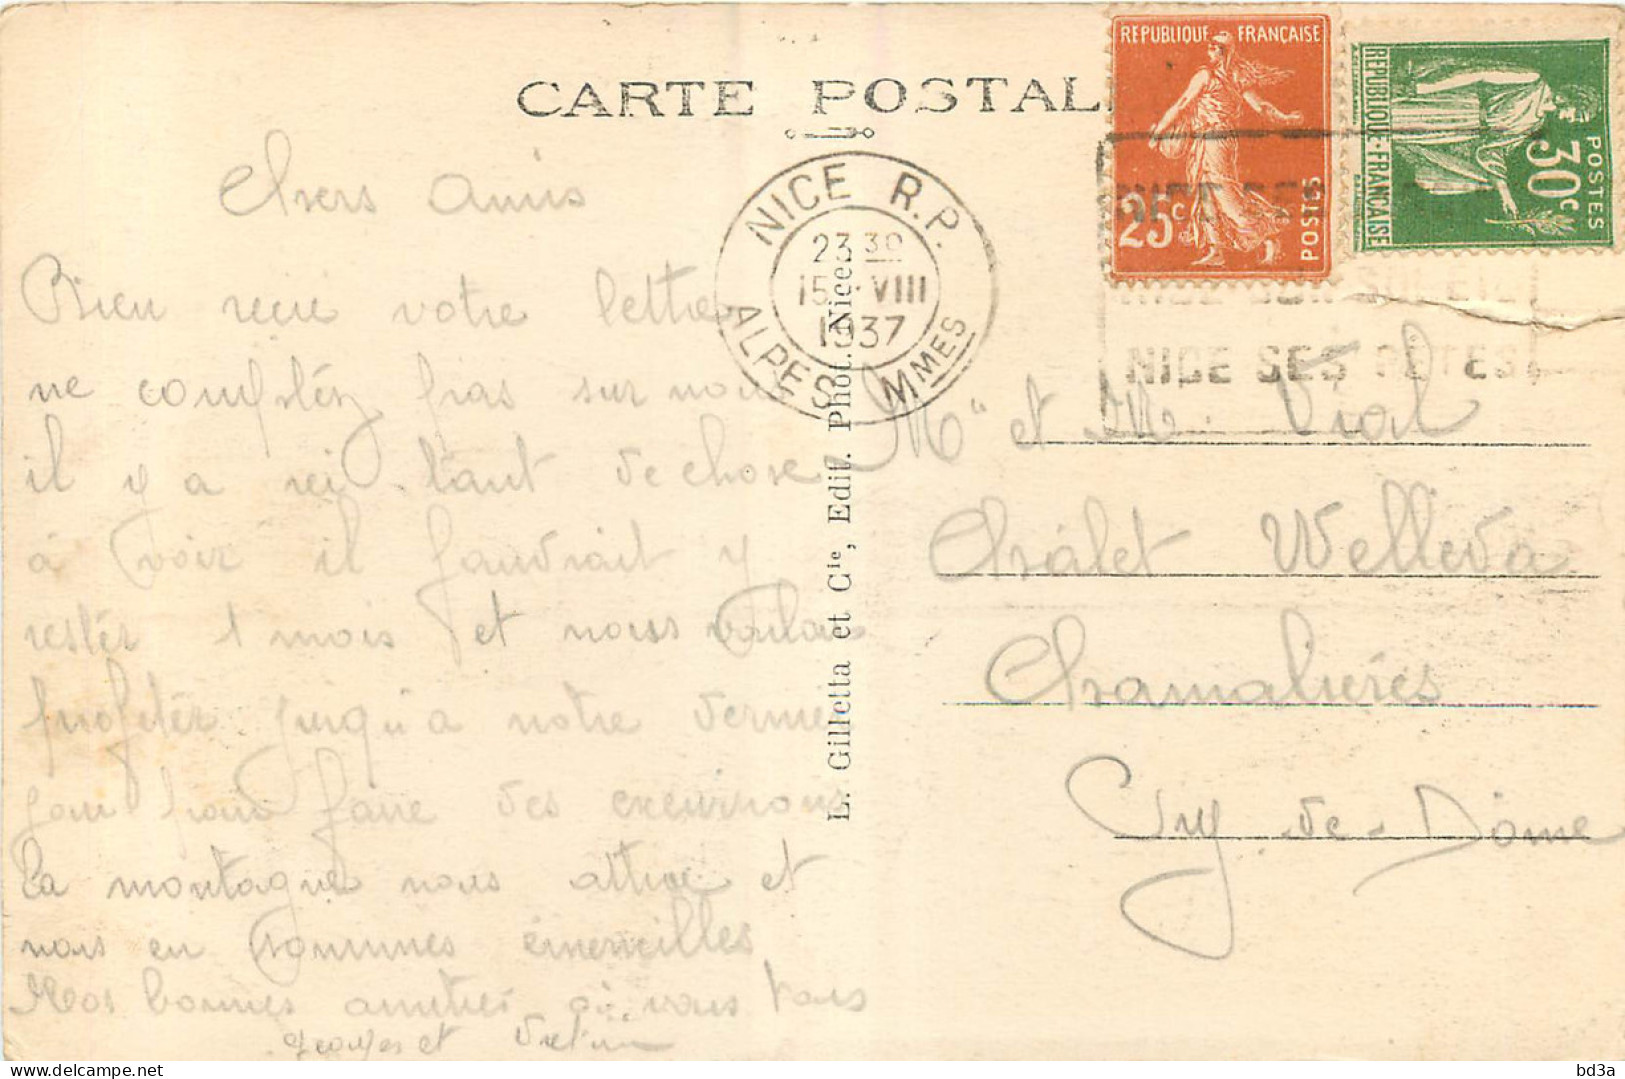 CARTE POSTALE
REPUBLIQUE FRANÇAISE
25c
POSTES
REPUBLIQUE·FRANÇAISE
30c
POSTES
NICE R.P.
23 30
15 · VIII
1937
ALPES Mmes
NICE SES
NICE SON SOLEIL
NICE SES FETES
Chers Amis
Bien reçu votre lettre
ne comptéz pas sur nous
il y a ici tant de chose
à voir il faudrait y
restér 1 mois et nous voulons
profitér jusqu'a notre dernier
jour pour faire des excursions
La montagne nous attire et
nous en sommes émerveilles
Nos bonnes amitiés a vous tous
Georges et
L. Gilletta et Cie, Edit. Phot. Nice
Mr et Me Vial
Chalet Welleda
Chamalières
Puy-de-Dôme
bd3a